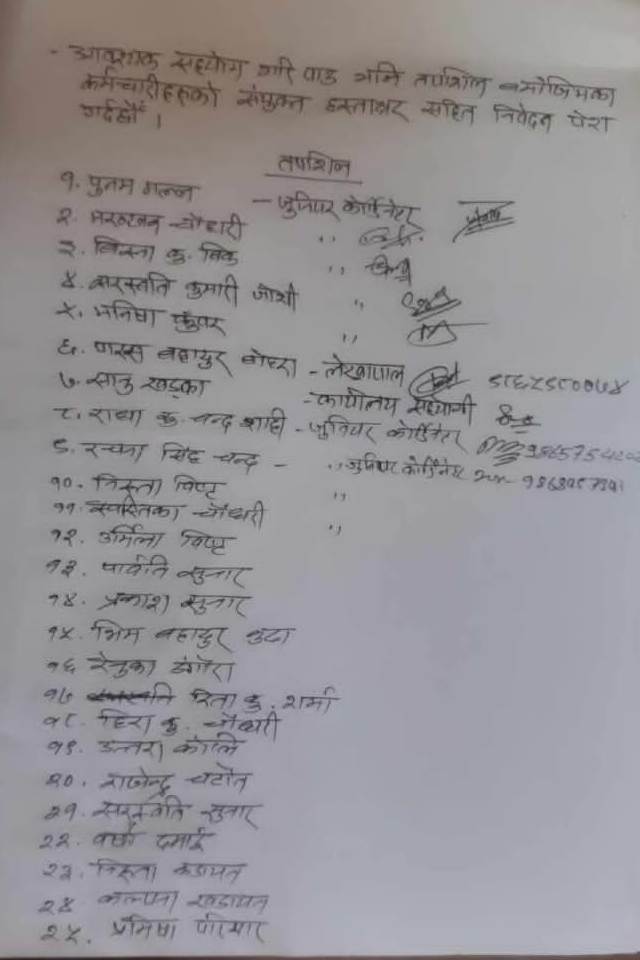 - आवश्यक सहयोग गरि पाउ भनि तपशिल बमोजिमका
कर्मचारीहरुको संयुक्त हस्ताक्षर सहित निवेदन पेश
गर्दछौं ।
तपशिल
१. पुनम मल्ल - जुनियर कोर्डिनेटर
२. चौधरी ,,
३. विस्ना कु. विक ,,
४. सरस्वति कुमारी जोशी ,,
५. मनिषा कुवर ,,
६. पारस बहादुर बोहरा - लेखापाल ९८६४८००७४
७. सानु खड्का - कार्यालय सहयोगी
८. राधा कु. चन्द शाही - जुनियर कोर्डिनेटर
९. रचना सिंह चन्द - ,, जुनियर कोर्डिनेटर
१०. निरुता विष्ट ,,
११. स्वस्तिका चौधरी ,,
१२. उर्मिला विष्ट
१३. पार्वति सुनार
१४. प्रकाश सुनार
१५. भिम बहादुर बुढा
१६ रेनुका डंगौरा
१७ रिता कु. शर्मा
१८. हिरा कु. चौधरी
१९. उन्तरा कोलि
२०. राजेन्द्र चटौत
२१. सरस्वति सुनार
२२. वर्षा दमाई
२३. निरुता कडायत
२४ कल्पना खडायत
२५. प्रमिषा परियार